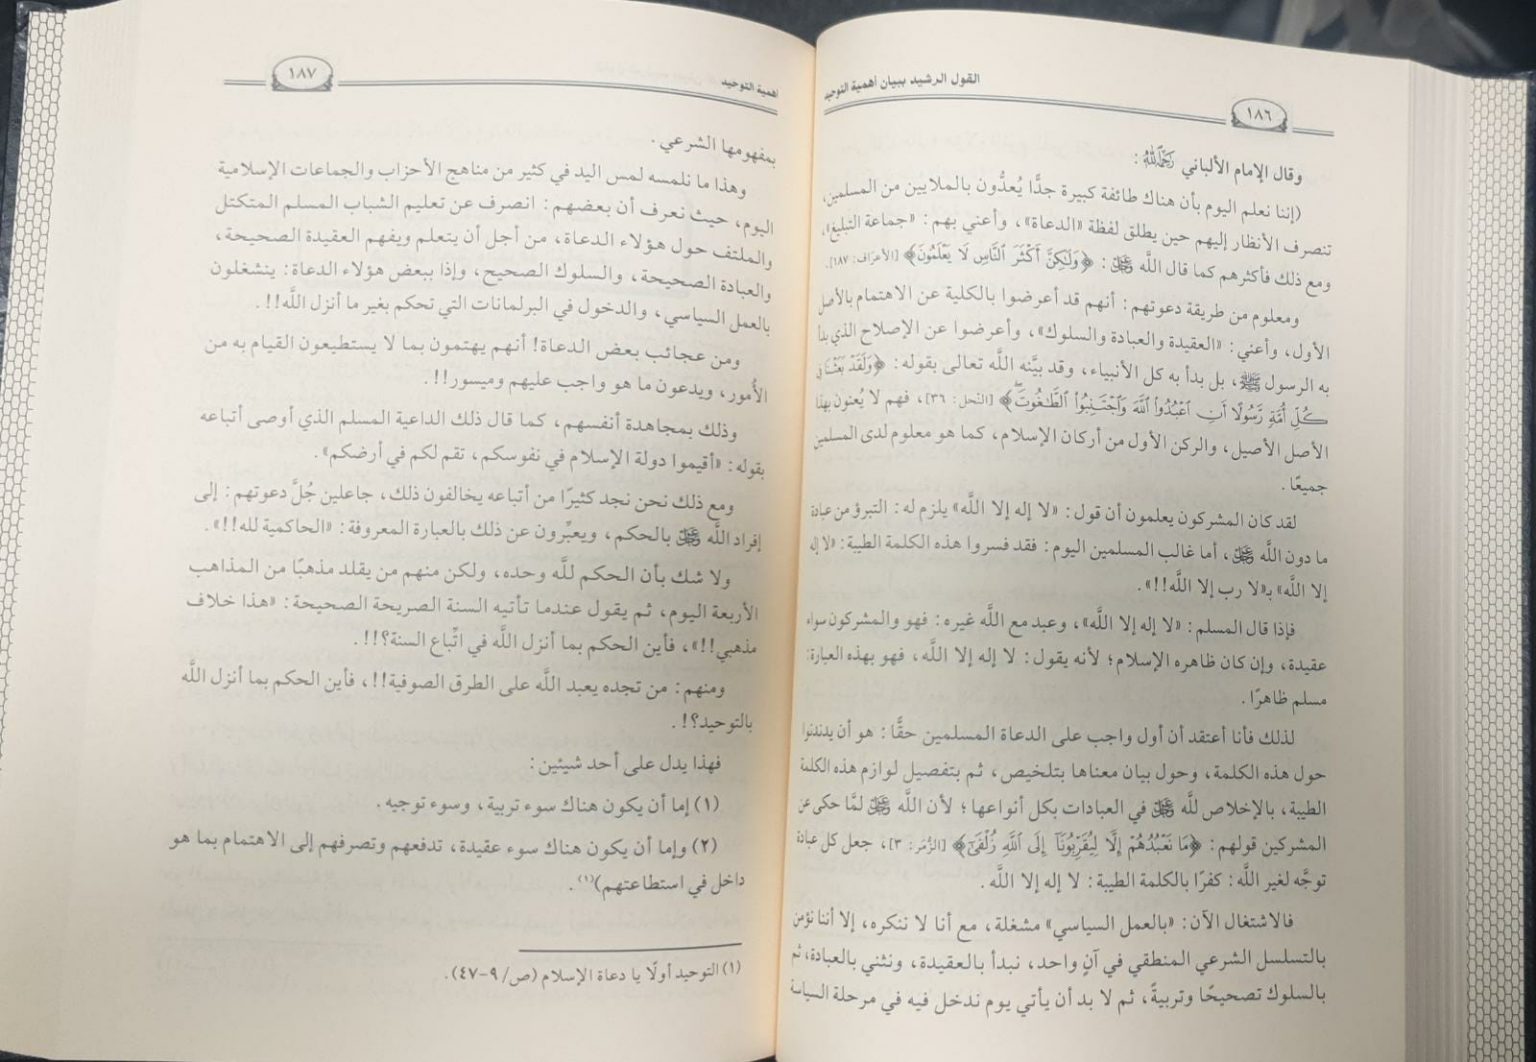 القول الرشيد ببيان أهمية التوحيد
١٨٦
وقال الإمام الألباني رَحِمَهُ اللَّهُ :
(إننا نعلم اليوم بأن هناك طائفة كبيرة جدًّا يُعدُّون بالملايين من المسلمين،
تنصرف الأنظار إليهم حين يطلق لفظة «الدعاة»، وأعني بهم: «جماعة التبليغ»،
ومع ذلك فأكثرهم كما قال اللَّه ﷻ: ﴿وَلَٰكِنَّ أَكْثَرَ النَّاسِ لَا يَعْلَمُونَ﴾ [الأعرَاف: ١٨٧].
ومعلوم من طريقة دعوتهم: أنهم قد أعرضوا بالكلية عن الاهتمام بالأصل
الأول، وأعني: «العقيدة والعبادة والسلوك»، وأعرضوا عن الإصلاح الذي بدأ
به الرسول ﷺ، بل بدأ به كل الأنبياء، وقد بيَّنه اللَّه تعالى بقوله: ﴿وَلَقَدْ بَعَثْنَا فِي
كُلِّ أُمَّةٍ رَّسُولًا أَنِ اعْبُدُوا اللَّهَ وَاجْتَنِبُوا الطَّاغُوتَ﴾ [النّحل: ٣٦]، فهم لا يُعنون بهذا
الأصل الأصيل، والركن الأول من أركان الإسلام، كما هو معلوم لدى المسلمين
جميعًا.
لقد كان المشركون يعلمون أن قول: «لا إله إلا اللَّه» يلزم له: التبرؤ من عبادة
ما دون اللَّه ﷻ، أما غالب المسلمين اليوم: فقد فسروا هذه الكلمة الطيبة: «لا إله
إلا اللَّه» بـ«لا رب إلا اللَّه!!».
فإذا قال المسلم: «لا إله إلا اللَّه»، وعبد مع اللَّه غيره: فهو والمشركون سواء
عقيدة، وإن كان ظاهره الإسلام؛ لأنه يقول: لا إله إلا اللَّه، فهو بهذه العبارة:
مسلم ظاهرًا.
لذلك فأنا أعتقد أن أول واجب على الدعاة المسلمين حقًّا: هو أن يدندنوا
حول هذه الكلمة، وحول بيان معناها بتلخيص، ثم بتفصيل لوازم هذه الكلمة
الطيبة، بالإخلاص للَّه ﷻ في العبادات بكل أنواعها؛ لأن اللَّه ﷻ لمَّا حكى عن
المشركين قولهم: ﴿مَا نَعْبُدُهُمْ إِلَّا لِيُقَرِّبُونَا إِلَى اللَّهِ زُلْفَىٰ﴾ [الزُّمَر: ٣]، جعل كل عبادة
توجَّه لغير اللَّه: كفرًا بالكلمة الطيبة: لا إله إلا اللَّه.
فالاشتغال الآن: «بالعمل السياسي» مشغلة، مع أنا لا ننكره، إلا أننا نؤمن
بالتسلسل الشرعي المنطقي في آنٍ واحد، نبدأ بالعقيدة، ونثني بالعبادة، ثم
بالسلوك تصحيحًا وتربيةً، ثم لا بد أن يأتي يوم ندخل فيه في مرحلة السياسة
أهمية التوحيد
١٨٧
بمفهومها الشرعي.
وهذا ما نلمسه لمس اليد في كثير من مناهج الأحزاب والجماعات الإسلامية
اليوم، حيث نعرف أن بعضهم: انصرف عن تعليم الشباب المسلم المتكتل
والملتف حول هؤلاء الدعاة، من أجل أن يتعلم ويفهم العقيدة الصحيحة،
والعبادة الصحيحة، والسلوك الصحيح، وإذا ببعض هؤلاء الدعاة: ينشغلون
بالعمل السياسي، والدخول في البرلمانات التي تحكم بغير ما أنزل اللَّه!!.
ومن عجائب بعض الدعاة! أنهم يهتمون بما لا يستطيعون القيام به من
الأُمور، ويدعون ما هو واجب عليهم وميسور!!.
وذلك بمجاهدة أنفسهم، كما قال ذلك الداعية المسلم الذي أوصى أتباعه
بقوله: «أقيموا دولة الإسلام في نفوسكم، تقم لكم في أرضكم».
ومع ذلك نحن نجد كثيرًا من أتباعه يخالفون ذلك، جاعلين جُلَّ دعوتهم: إلى
إفراد اللَّه ﷻ بالحكم، ويعبِّرون عن ذلك بالعبارة المعروفة: «الحاكمية لله!!».
ولا شك بأن الحكم للَّه وحده، ولكن منهم من يقلد مذهبًا من المذاهب
الأربعة اليوم، ثم يقول عندما تأتيه السنة الصريحة الصحيحة: «هذا خلاف
مذهبي!!»، فأين الحكم بما أنزل اللَّه في اتِّباع السنة؟!!.
ومنهم: من تجده يعبد اللَّه على الطرق الصوفية!!، فأين الحكم بما أنزل اللَّه
بالتوحيد؟!.
فهذا يدل على أحد شيئين:
(١) إما أن يكون هناك سوء تربية، وسوء توجيه.
(٢) وإما أن يكون هناك سوء عقيدة، تدفعهم وتصرفهم إلى الاهتمام بما هو
داخل في استطاعتهم)(١).
(١) التوحيد أولًا يا دعاة الإسلام (ص/ ٩-٤٧).